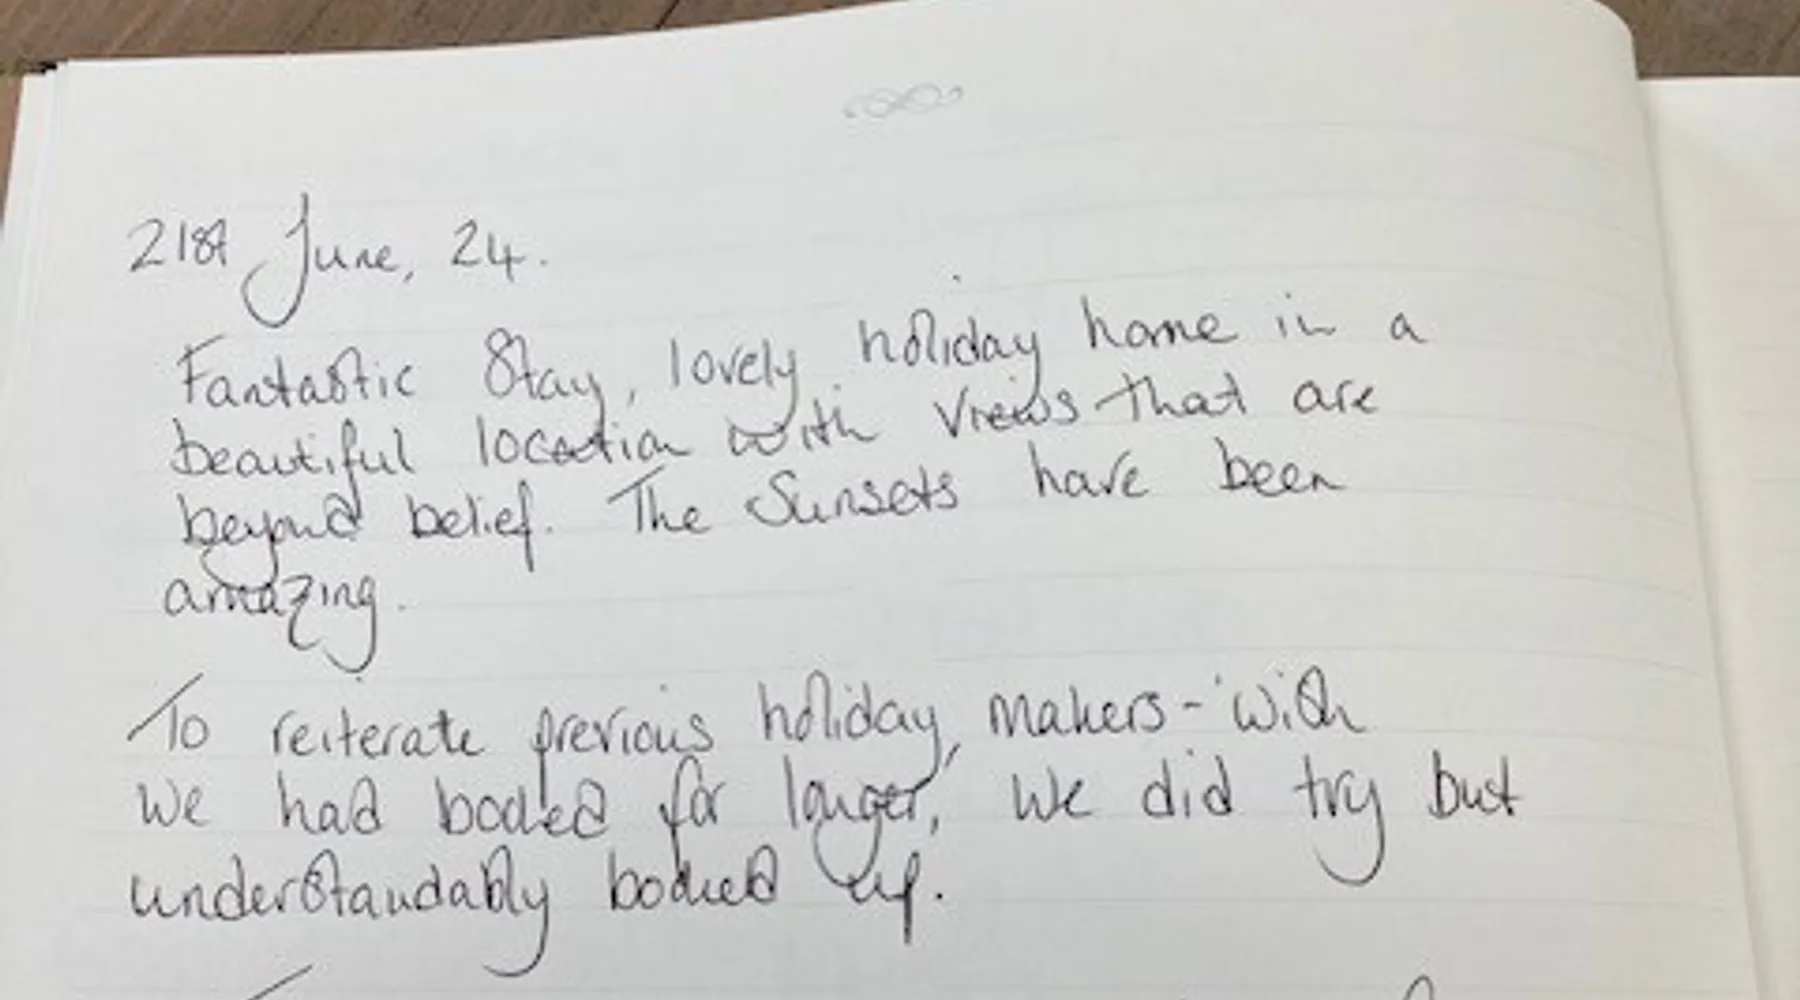 21st June, 24.
Fantastic Stay, lovely holiday home in a
beautiful location with views that are
beyond belief. The Sunsets have been
amazing.
To reiterate previous holiday makers - with
we had booked for longer, we did try but
understandably booked up.